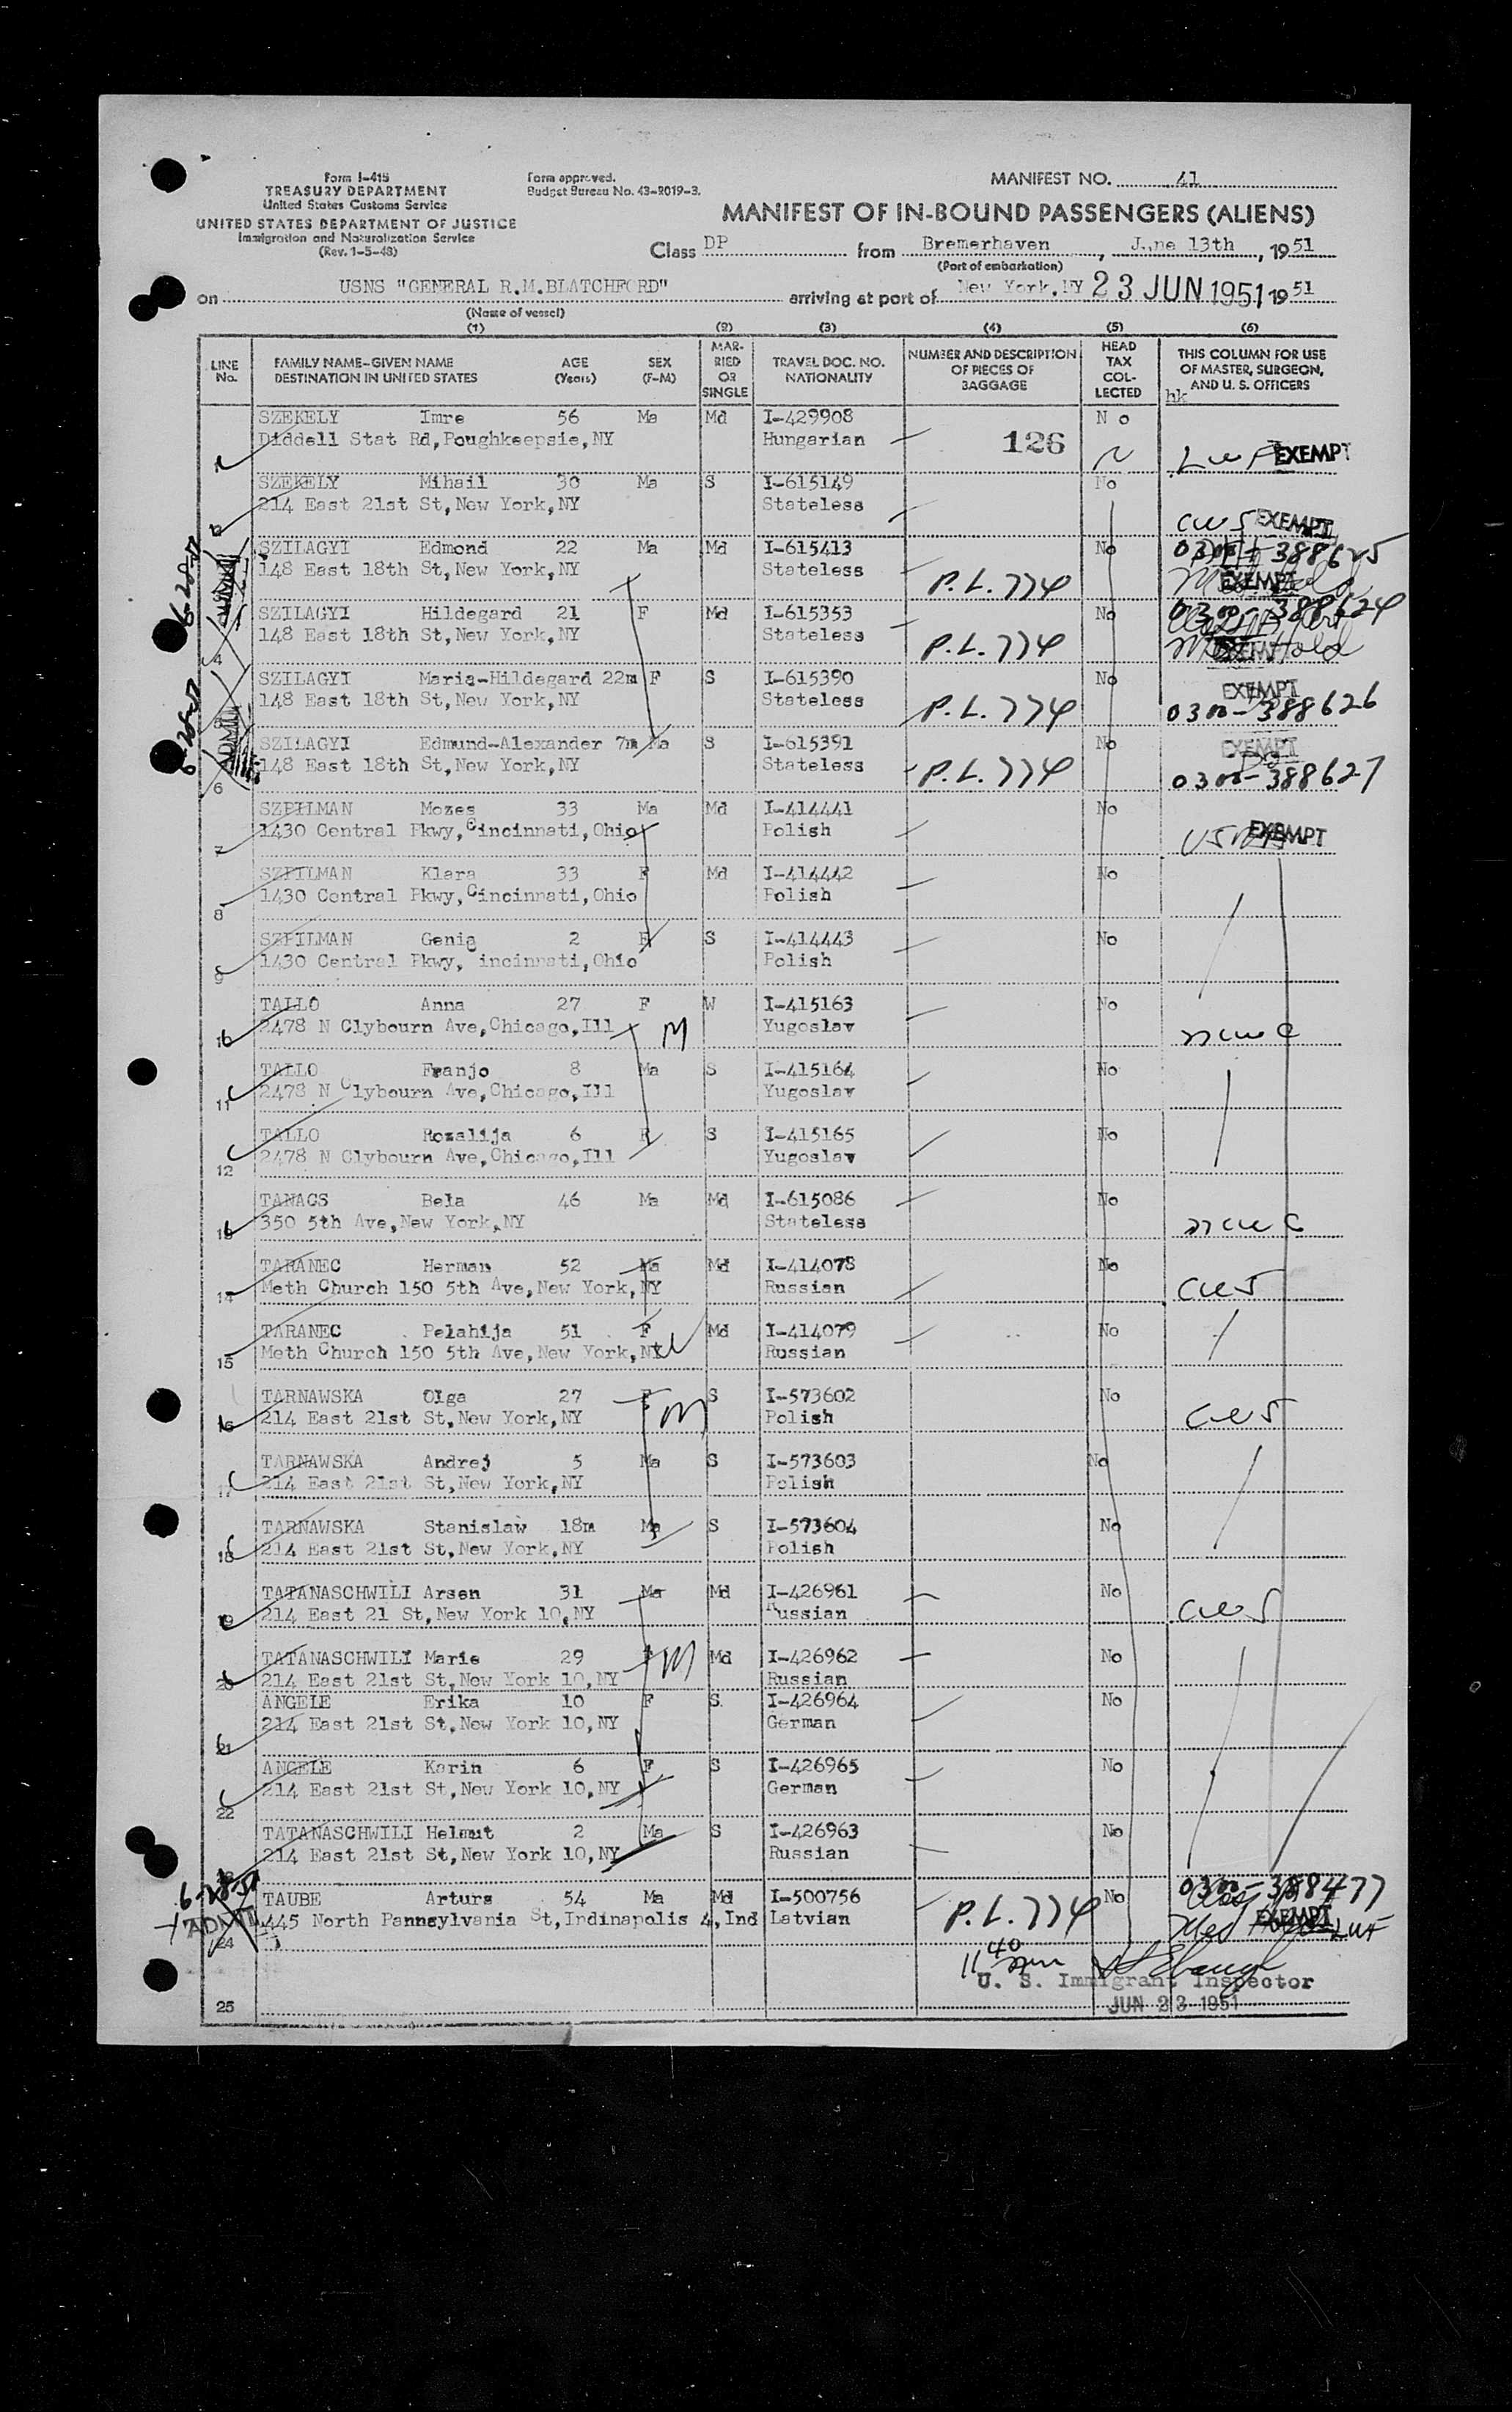 Form I-415
TREASURY DEPARTMENT
United States Customs Service
UNITED STATES DEPARTMENT OF JUSTICE
Immigration and Naturalization Service
(Rev. 1-5-48)
Form approved.
Budget Bureau No. 43-R019-3.
MANIFEST NO. 41
MANIFEST OF IN-BOUND PASSENGERS (ALIENS)
Class DP from Bremerhaven, June 13th, 1951
(Port of embarkation)
on USNS "GENERAL R.M.BLATCHFORD" arriving at port of New York, NY 23 JUN 1951 1951
(Name of vessel)
(1) (2) (3) (4) (5) (6)
LINE No. FAMILY NAME-GIVEN NAME DESTINATION IN UNITED STATES AGE (Years) SEX (F-M) MARRIED OR SINGLE TRAVEL DOC. NO. NATIONALITY NUMBER AND DESCRIPTION OF PIECES OF BAGGAGE HEAD TAX COLLECTED THIS COLUMN FOR USE OF MASTER, SURGEON, AND U. S. OFFICERS
hk
SZEKELY Imre 56 Ma Md I-429908 No
Diddell Stat Rd,Poughkeepsie,NY Hungarian 126 LWF EXEMPT
SZEKELY Mihail 30 Ma S I-615149 No
214 East 21st St,New York,NY Stateless CWS EXEMPT
SZILAGYI Edmond 22 Ma Md I-615413 No 0300-388625
148 East 18th St,New York,NY Stateless P.L.774 EXEMPT
SZILAGYI Hildegard 21 F Md I-615353 No 0300-388624
4 148 East 18th St,New York,NY Stateless P.L.774 Hold
SZILAGYI Maria-Hildegard 22m F S I-615390 No EXEMPT
148 East 18th St,New York,NY Stateless P.L.774 0300-388626
SZILAGYI Edmund-Alexander 7m Ma S I-615391 No EXEMPT
6 148 East 18th St,New York,NY Stateless P.L.774 0300-388627
SZPILMAN Mozes 33 Ma Md I-414441 No
7 1430 Central Pkwy,Cincinnati,Ohio Polish EXEMPT
SZPILMAN Klara 33 F Md I-414442 No
8 1430 Central Pkwy,Cincinnati,Ohio Polish
SZPILMAN Genia 2 F S I-414443 No
9 1430 Central Pkwy, incinnati,Ohio Polish
TALLO Anna 27 F W I-415163 No
10 2478 N Clybourn Ave,Chicago,Ill M Yugoslav NCWC
TALLO Franjo 8 Ma S I-415164 No
11 2478 N Clybourn Ave,Chicago,Ill Yugoslav
TALLO Rozalija 6 F S I-415165 No
12 2478 N Clybourn Ave,Chicago,Ill Yugoslav
TANACS Bela 46 Ma Md I-615086 No
13 350 5th Ave,New York,NY Stateless NCWC
TARANEC Herman 52 Ma Md I-414078 No
14 Meth Church 150 5th Ave,New York,NY Russian CWS
TARANEC Pelahija 51 F Md I-414079 No
15 Meth Church 150 5th Ave,New York,NY Russian
TARNAWSKA Olga 27 F S I-573602 No
16 214 East 21st St,New York,NY M Polish CWS
TARNAWSKA Andrej 5 Ma S I-573603 No
17 214 East 21st St,New York,NY Polish
TARNAWSKA Stanislaw 18m Ma S I-573604 No
18 214 East 21st St,New York,NY Polish
TATANASCHWILI Arsen 31 Ma Md I-426961 No
19 214 East 21 St,New York 10,NY Russian CWS
TATANASCHWILI Marie 29 F M Md I-426962 No
20 214 East 21st St,New York 10,NY Russian
ANGELE Erika 10 F S. I-426964 No
21 214 East 21st St,New York 10,NY German
ANGELE Karin 6 F S I-426965 No
22 214 East 21st St,New York 10,NY German
TATANASCHWILI Helmut 2 Ma S I-426963 No
214 East 21st St,New York 10,NY Russian
6-28-51 TAUBE Arturs 54 Ma Md I-500756 No 0300-388477
ADMIT 445 North Pennsylvania St,Indinapolis 4,Ind Latvian P.L.774 EXEMPT LWF
24
11 40 am
U. S. Immigrant Inspector
25 JUN 23 1951